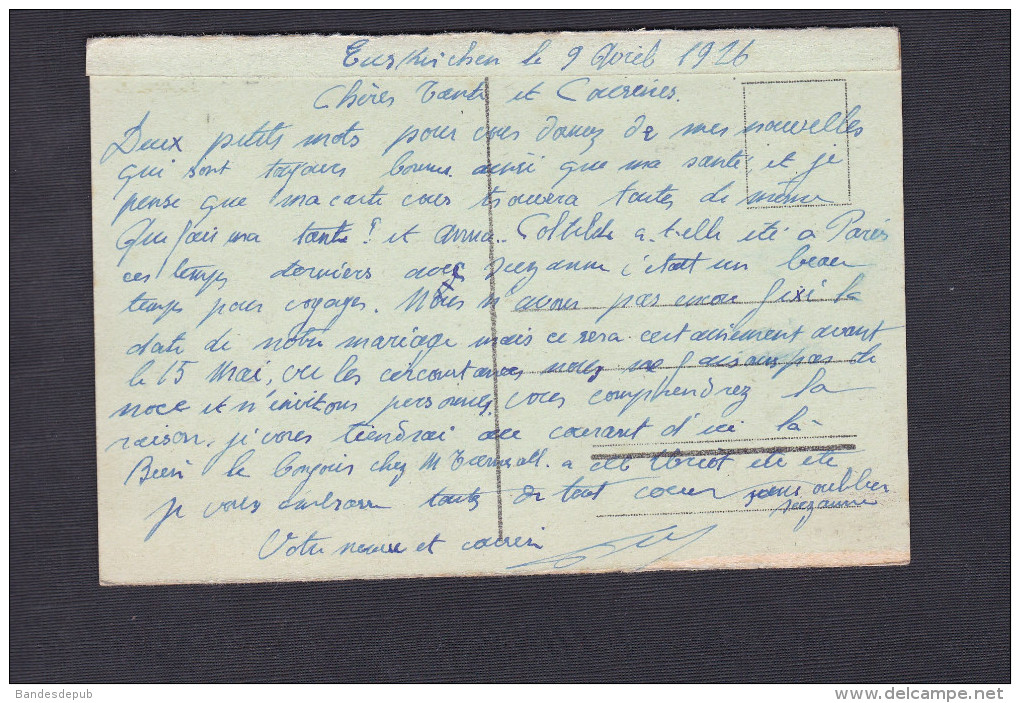 Euskirchen le 9 Avril 1926
Chères Tante et Cousines.
Deux petits mots pour vous donnez de mes nouvelles
qui sont toujours bonnes ainsi que ma santé, et je
pense que ma carte vous trouvera toutes de même
Que fais ma tante? et Anna.. Clotilde a-t-elle été à Paris
ces temps derniers avec Suzanne c'était un beau
temps pour voyages. Nous n'avons pas encore fixé la
date de notre mariage mais ce sera certainement avant
le 15 Mai, vu les circonstances nous ne faisons pas de
noce et n'invitons personnes, vous comprendrez la
raison. je vous tiendrai au courant d'ici là-
Bien le bonjour chez M a
je vous embrasse toutes de tout coeur sans oublier
Suzanne
Votre neveu et cousin
Bandesdepub
© www.delcampe.net